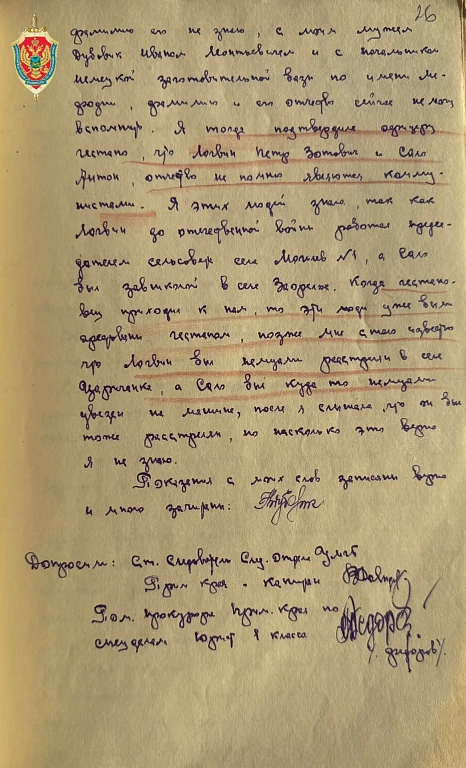 26
фамилию его не знаю, с моим мужем
Дубовик Иваном Леонтьевичем и с начальником
немецкой заготовительной базы по имени Ме-
фодий, фамилию и его отчество сейчас не могу
вспомнить. Я тогда подтвердила офицеру
гестапо, что Логвин Петр Зотович и Сало
Антон, отчество не помню являются комму-
нистами. Я этих людей знала, так как
Логвин до отечественной войны работал предсе-
дателем сельсовета села Могилев №1, а Сало
был завшколой в селе Заорелье. Когда гестапо-
вец приходил к нам, то эти люди уже были
арестованы гестапом, позже мне стало известно
что Логвин был немцами расстрелян в селе
Царичанке, а Сало был куда то немцами
увезен на машине, после я слышала, что он был
тоже расстрелян, но насколько это верно
я не знаю.
Показания с моих слов записаны верно
и мною зачитаны:
Допросили: Ст. Следователь След. Отдел УМГБ
Прим края - капитан
Пом. Прокурора Прим. края по
спецделам Юрист 1 класса